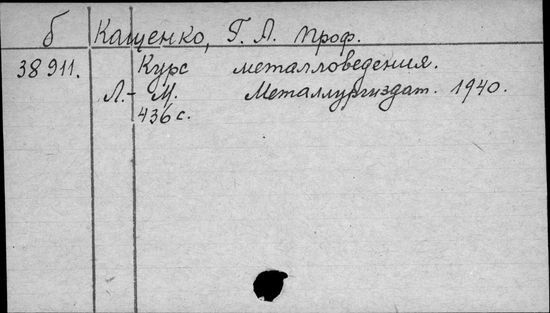 б Кащенко, Г. А. проф.
38911. Курс металловедения.
Л.-М. Металлургиздат. 1940.
436 с.